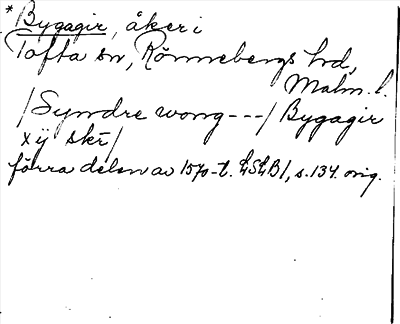 *Bygagir, åker i
Tofta sn, Rönnebergs hd,
Malm. l.
/Syndre wong ---/ Bygagir
xij skr/
förra delen av 1570-t. LSLB1, s. 134. orig.